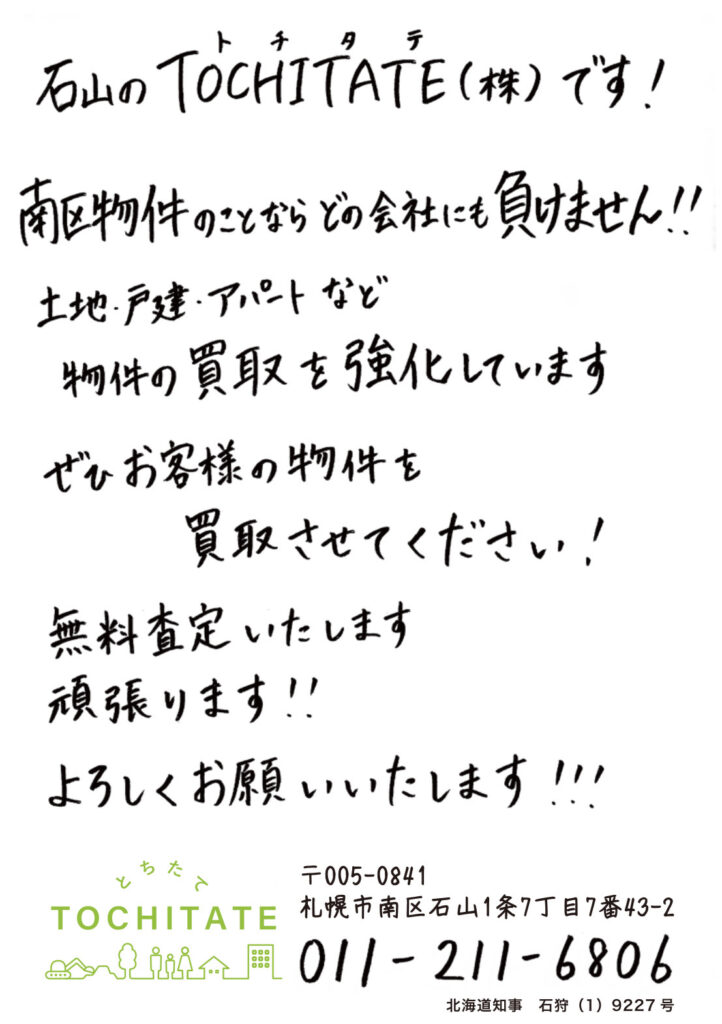 トチタテ
石山のTOCHITATE(株)です!
南区物件のことならどの会社にも負けません!!
土地・戸建・アパートなど
物件の買取を強化しています
ぜひお客様の物件を
買取させてください!
無料査定いたします
頑張ります!!
よろしくお願いいたします!!!
とちたて
TOCHITATE
〒005-0841
札幌市南区石山1条7丁目7番43-2
011-211-6806
北海道知事 石狩(1)9227号